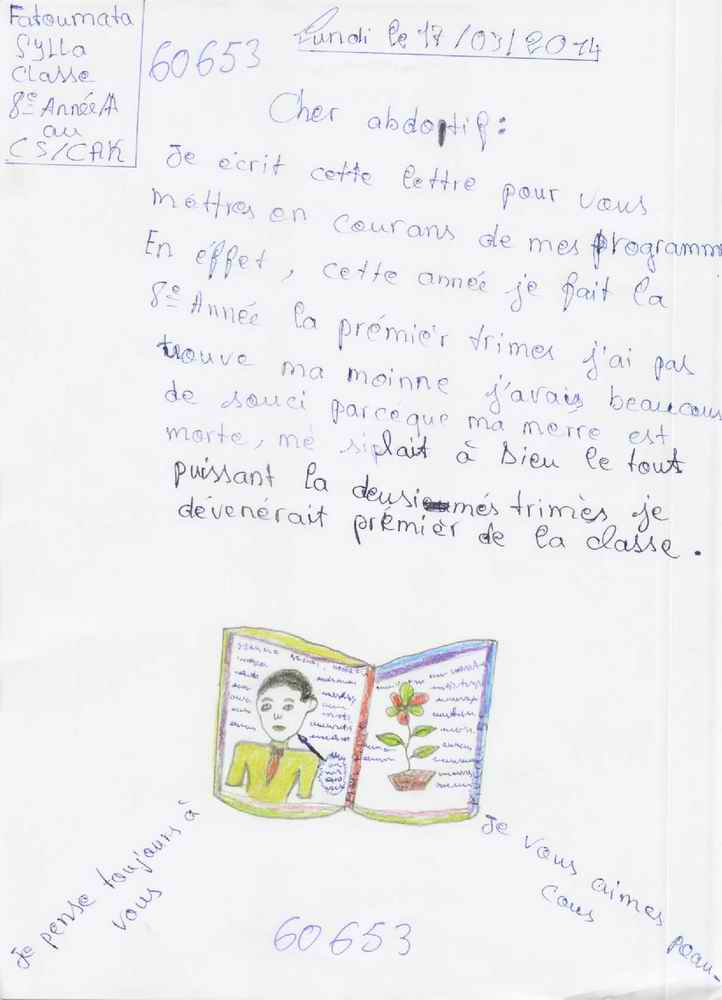 Fatoumata
Sylla
Classe
8e Année/A
au
CS/CAK
60653
Lundi le 17/03/2014
Cher abdoptif:
Je écrit cette lettre pour vous
méttres en courans de mes programm
En éffet, cette année je fait la
8e Année la prémièr trimes j'ai pas
trouve ma moinne j'avais beaucous
de souci parcéque ma merre est
morte, mé siplait à Dieu le tout
puissant la deusiemés trimès je
dévenérait prémièr de la classe.
Je pense toujours à
vous
Je vous aimes peau-
cous
60653